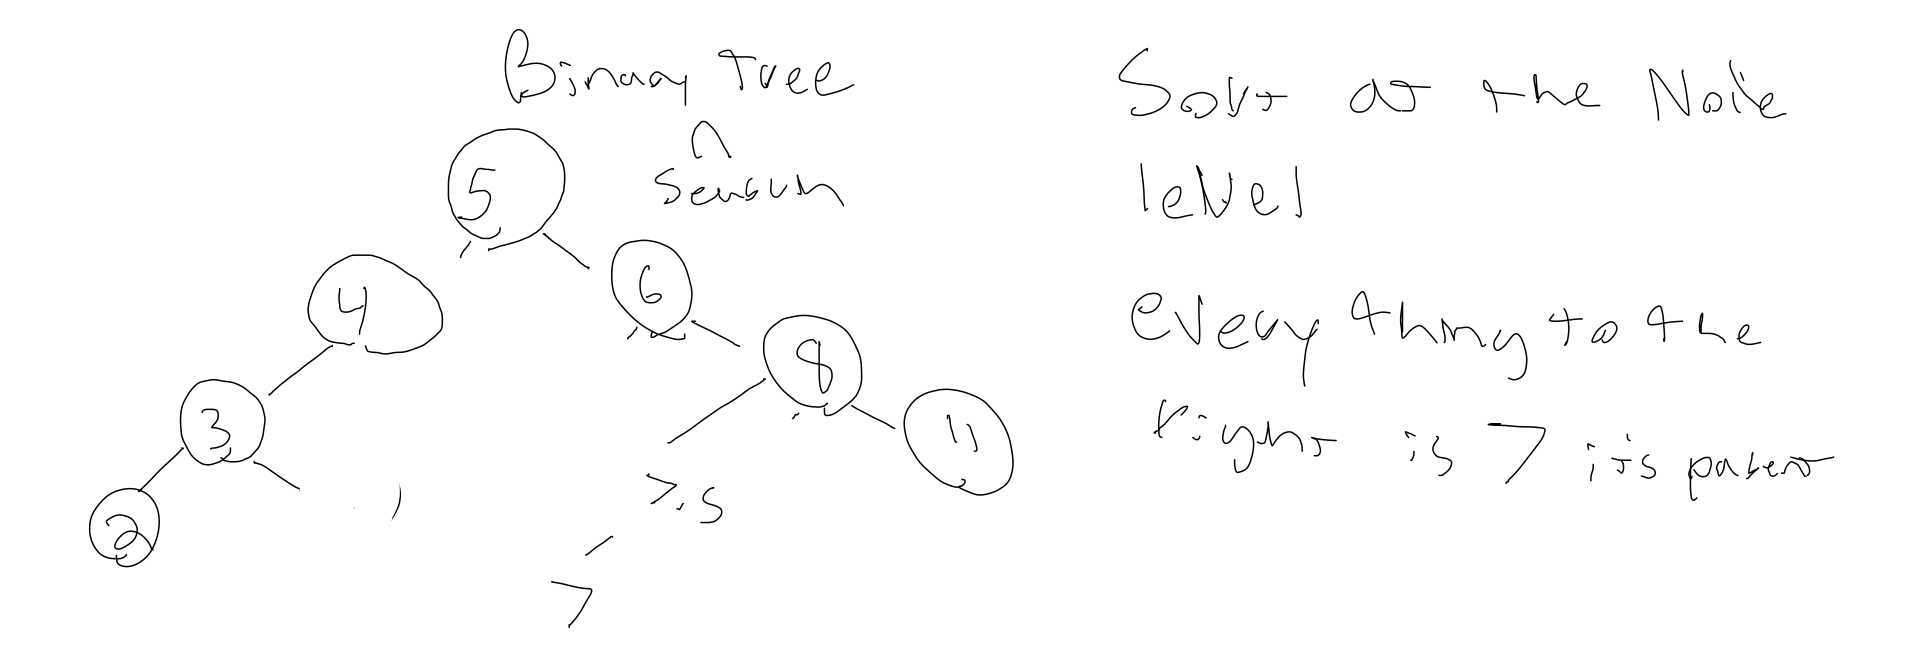 Binary Tree
^
Search
5
4
6
3
8
11
2
7.5
7
Sort at the Node
level
every thing to the
right is > it's parent